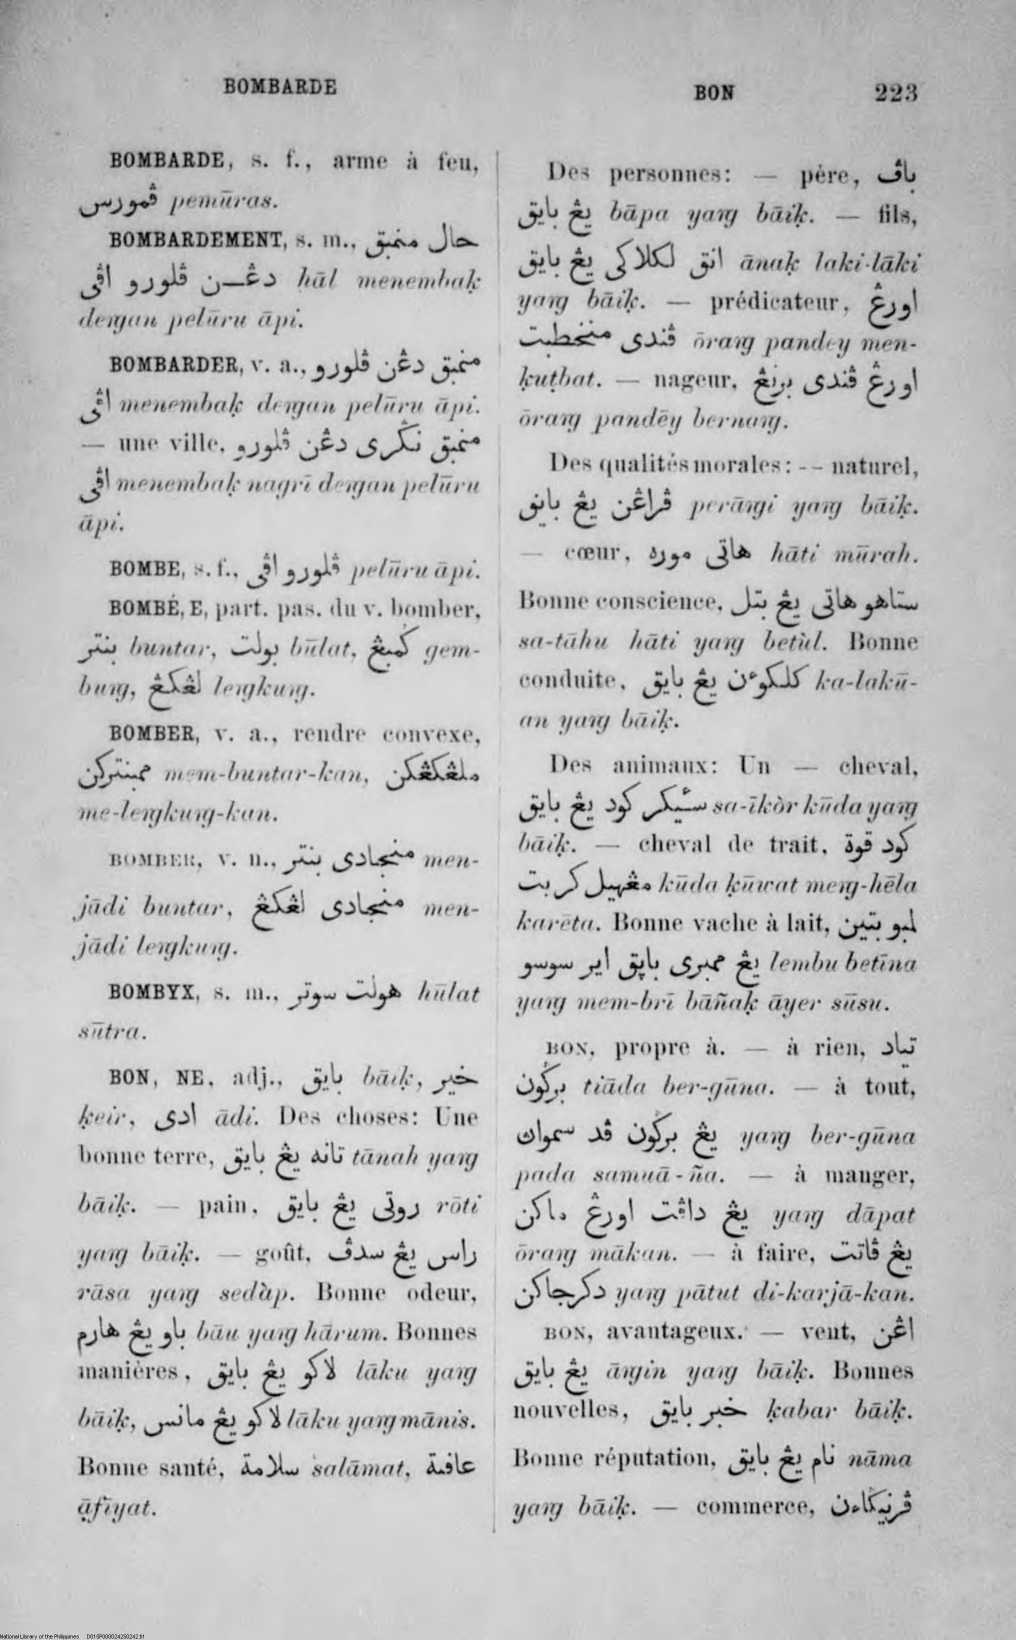 BOMBARDE
BON 223
BOMBARDE, s. f., arme à feu,
ڤمورس pemūras.
BOMBARDEMENT, s. m., حال منمبق
دڠــن ڤلورو اڤي hāl menembaḳ
deŋgan pelūru āpi.
BOMBARDER, v. a., منمبق دڠن ڤلورو
اڤي menembaḳ deŋgan pelūru āpi.
— une ville, منمبق نݢري دڠن ڤلورو
اڤي menembaḳ nagrī deŋgan pelūru
āpi.
BOMBE, s. f., ڤلورو اڤي pelūru āpi.
BOMBÉ, E, part. pas. du v. bomber,
بنتر buntar, بولت būlat, ݢمبڠ gem-
buŋg, لڠكڠ leŋgkuŋg.
BOMBER, v. a., rendre convexe,
ممبنتركن mem-buntar-kan, ملڠكڠكن
me-leŋgkuŋg-kan.
BOMBER, v. n., منجادي بنتر men-
jādi buntar, منجادي لڠكڠ men-
jādi leŋgkuŋg.
BOMBYX, s. m., هولت سوتر hūlat
sūtra.
BON, NE, adj., بايق bāiḳ, خير
ḳeir, ادي ādi. Des choses: Une
bonne terre, تانه يڠ بايق tānah yaŋg
bāiḳ. — pain, روتي يڠ بايق rōti
yaŋg bāiḳ. — goût, راس يڠ سدڤ
rāsa yaŋg sedàp. Bonne odeur,
باو يڠ هارم bāu yaŋg hārum. Bonnes
manières, لاكو يڠ بايق lāku yaŋg
bāiḳ, لاكو يڠ مانس lāku yaŋg mānis.
Bonne santé, سلامة salāmat, عافية
āfīyat.
Des personnes: — père, باڤ
يڠ بايق bāpa yaŋg bāiḳ. — fils,
انق لكلاكي يڠ بايق ānaḳ laki-lāki
yaŋg bāiḳ. — prédicateur, اورڠ
ڤندي منخطبت ōraŋg pandey men-
ḳuṭbat. — nageur, اورڠ ڤندي برنڠ
ōraŋg pandēy bernaŋg.
Des qualités morales: — naturel,
ڤراڠن يڠ بايق perāŋgi yaŋg bāiḳ.
— cœur, هاتي موره hāti mūrah.
Bonne conscience, ستاهو هاتي يڠ بتل
sa-tāhu hāti yaŋg betùl. Bonne
conduite, كلكوءن يڠ بايق ka-lakū-
an yaŋg bāiḳ.
Des animaux: Un — cheval,
سئيكر كود يڠ بايق sa-īkòr kūda yaŋg
bāiḳ. — cheval de trait, كود قوة
مڠهيل كريت kūda ḳūwat meŋg-hēla
karēta. Bonne vache à lait, لمبو بتين
يڠ ممبري باڽق اير سوسو lembu betīna
yaŋg mem-brī bāñaḳ āyer sūsu.
BON, propre à. — à rien, تياد
برݢون tiāda ber-gūna. — à tout,
يڠ برݢون ڤد سمواڽ yaŋg ber-gūna
pada samuā-ña. — à manger,
يڠ داڤت اورڠ ماكن yaŋg dāpat
ōraŋg mākan. — à faire, يڠ ڤاتت
دكرجاكن yaŋg pātut di-karjā-kan.
BON, avantageux. — vent, اڠن
يڠ بايق āŋgin yaŋg bāiḳ. Bonnes
nouvelles, خبر بايق ḳabar bāiḳ.
Bonne réputation, نام يڠ بايق nāma
yaŋg bāiḳ. — commerce, ڤرنيݢاءن
National Library of the Philippines